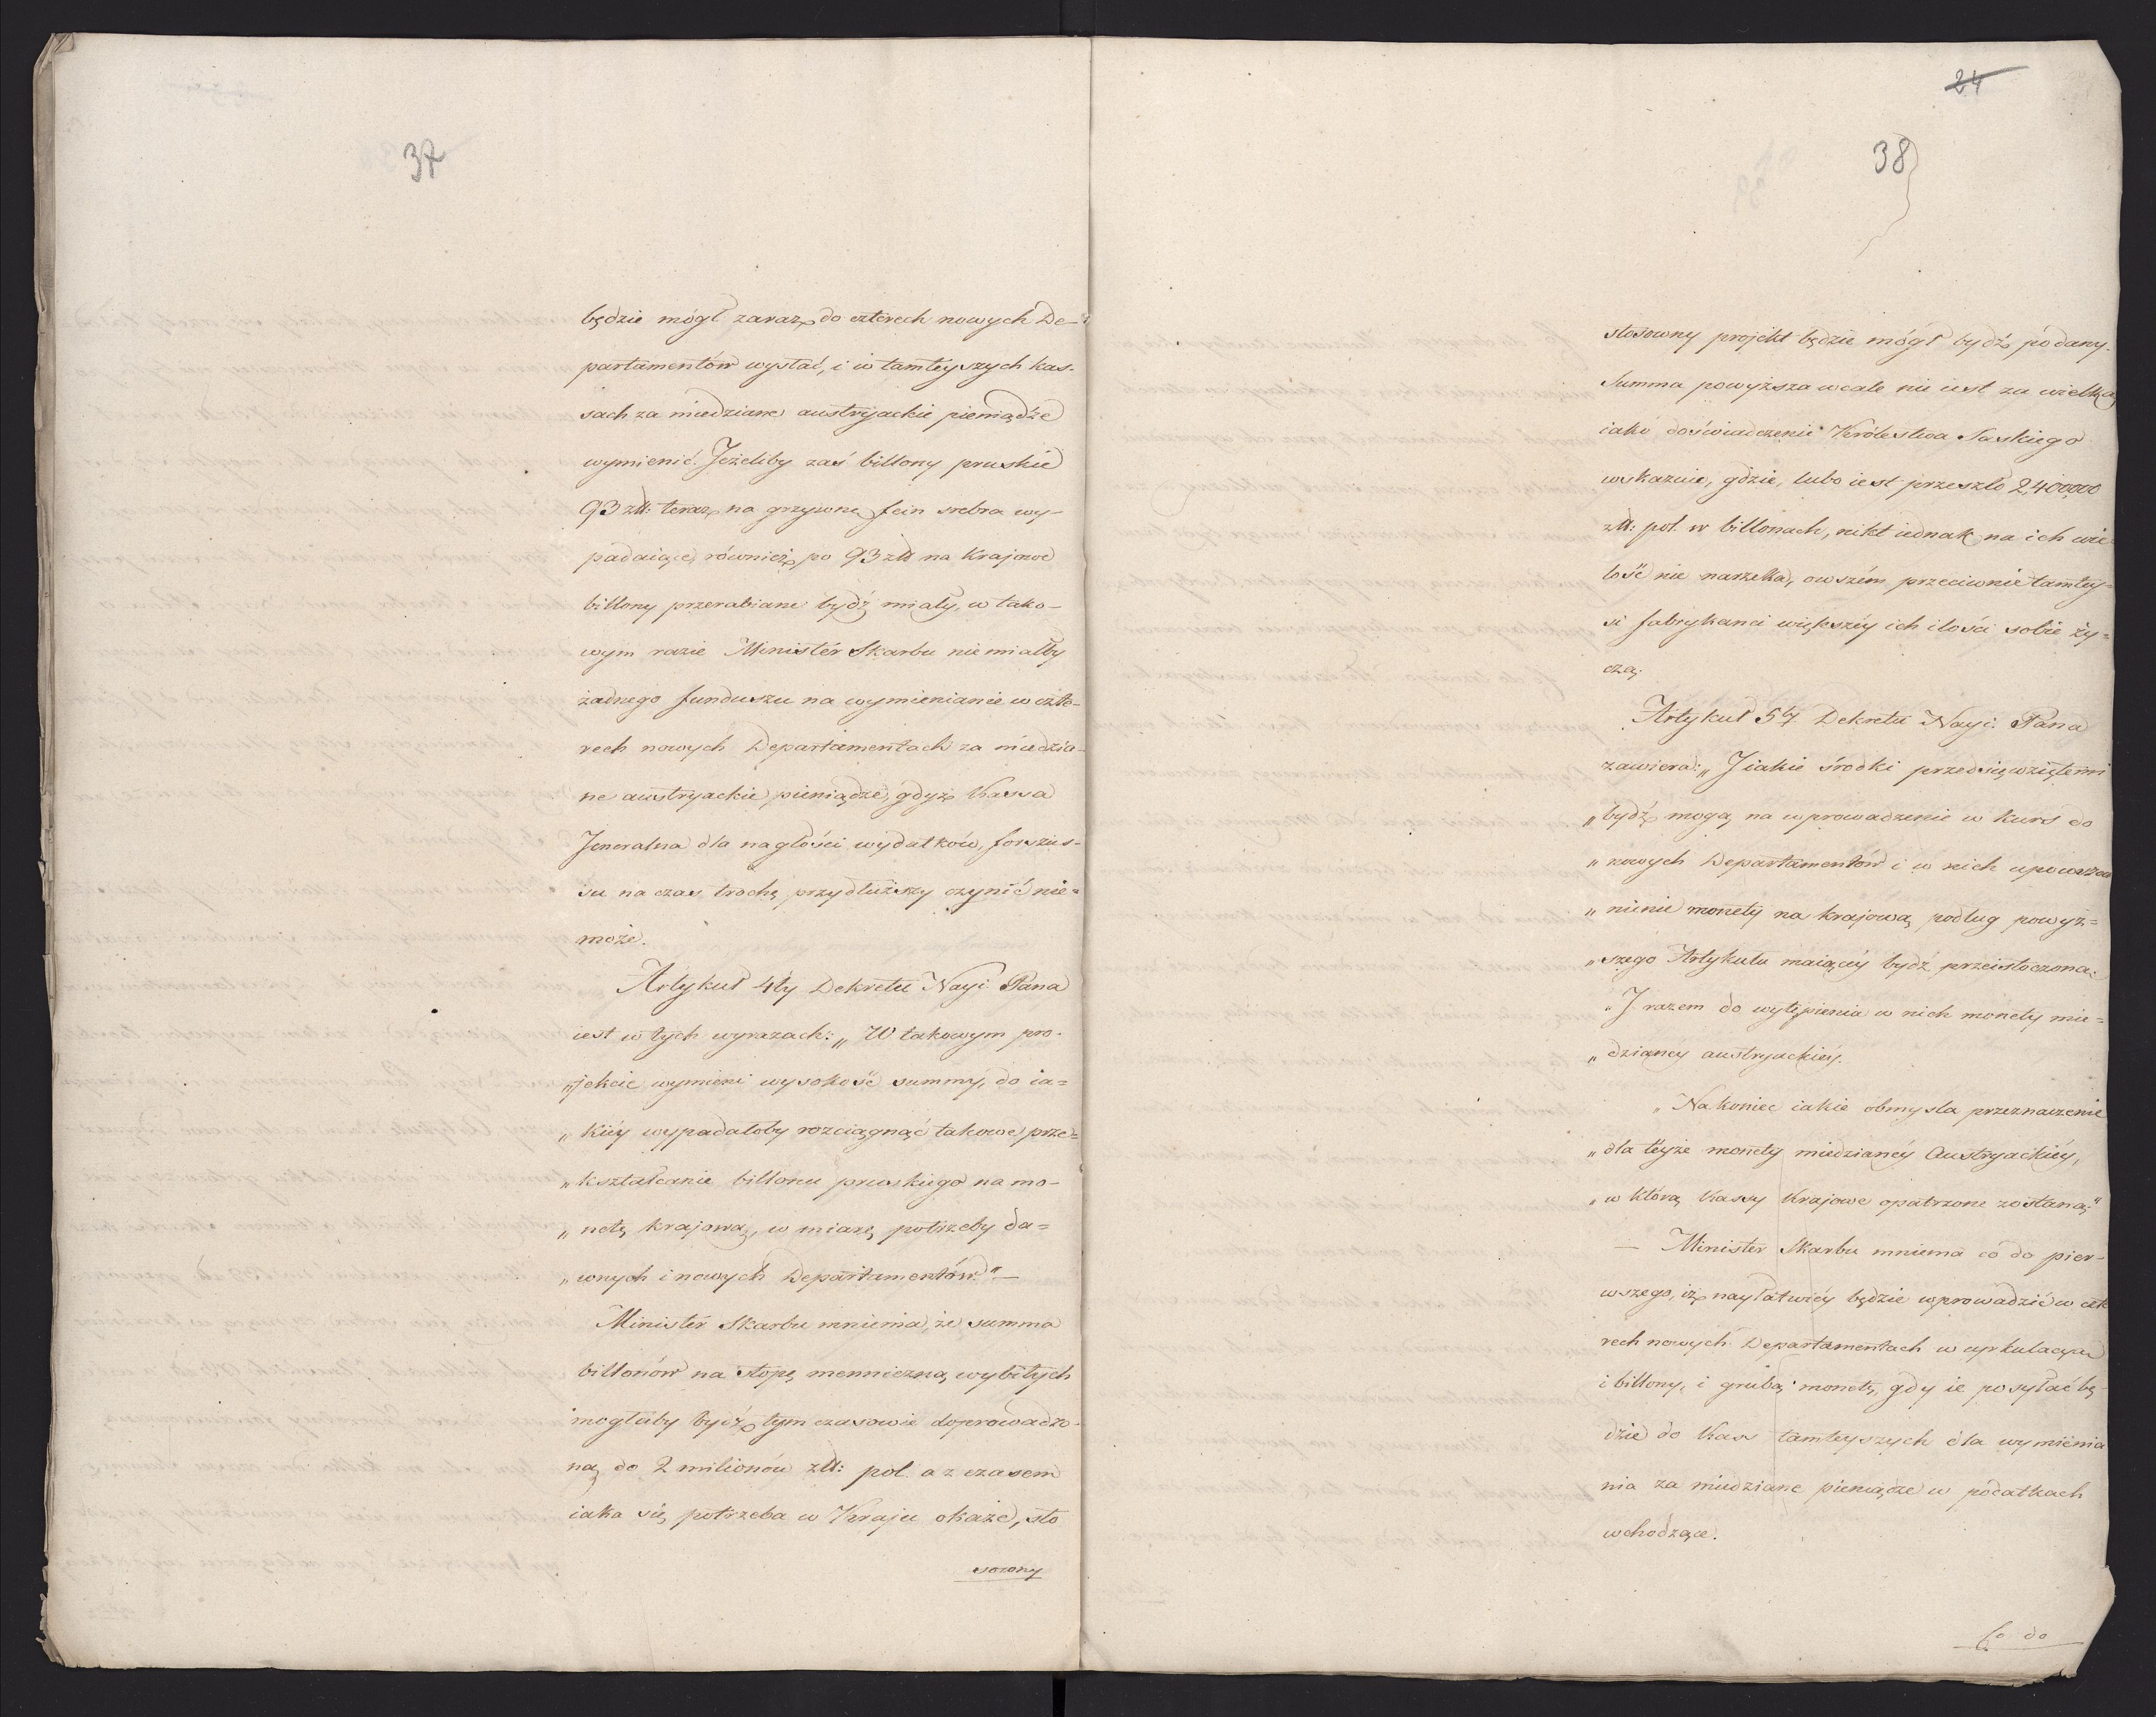 37
będzie mógł zaraz do czterech nowych De-
partamentów wysłać, i w tamteyszych kas-
sach za miedziane austryackie pieniądze
wymienić. Jeżeliby zaś billony pruskie
93 złł: teraz na grzywnę fein srebra wy-
padaiące, również po 93 złł na Krajowe
billony przerabiane bydź miały, w tako-
wym razie Minister Skarbu nie miałby
żadnego funduszu na wymienianie w czte-
rech nowych Departamentach za miedzia-
ne austryackie pieniądze, gdyż Kassa
Jeneralna dla nagłości wydatków, forszus-
su na czas trochę przydłuższy czynić nie=
może.
Artykuł 4ty Dekretu Nayi: Pana
iest w tych wyrazach: „W takowym pro-
„jekcie wymieni wysokość summy, do ia=
„kiéy wypadałoby rozciągnąć takowe prze=
„kształcanie billonu pruskiego na mo-
„netę krajową, w miarę potrzeby da=
„wnych i nowych Departamentów." —
Minister Skarbu mniema, że summa
billonów na stopę menniczną wybitych
mogłaby bydź tym czasowie doprowadzo-
ną do 2 milionów złł: pol. a z czasem
iaka się potrzeba w Kraju okaże, sto
sowny
24
38
stosowny projekt będzie mógł bydź podany.
Summa powyższa wcale nie iest za wielką
iako doświadczenie Królestwa Saskiego
wskazuie, gdzie, lubo iest przeszło 2,400000
złł: pol. w billonach, nikt iednak na ich wie
lość nie narzeka, owszém przeciwnie tamtey=
si fabrykanci większéy ich ilości sobie ży=
czą.
Artykuł 5ty Dekretu Nayi: Pana
zawiera: „J iakie środki przedsięwziętemi
„bydź mogą na wprowadzenie w kurs do
„nowych Departamentów i w nich upowszech
„nienie monety na krajową podług powyż=
„szego Artykułu maiącéy bydź przeistoczona:
„J razem do wytępienia w nich monety mie=
„dzianéy austryackiéy.
„Nakoniec iakie obmyśla przeznaczenie
„dla teyże monety miedzianéy Austryackiéy,
„w którą Kassy Krajowe opatrzone zostaną;"
— Minister Skarbu mniema co do pier-
wszego, iż nayłatwiéy będzie wprowadzić w czte
rech nowych Departamentach w cyrkulacyą
i billony, i grubą monetę, gdy ie posyłać bę-
dzie do Kass tamteyszych dla wymienia
nia za miedziane pieniądze w podatkach
wchodzące.
Co do